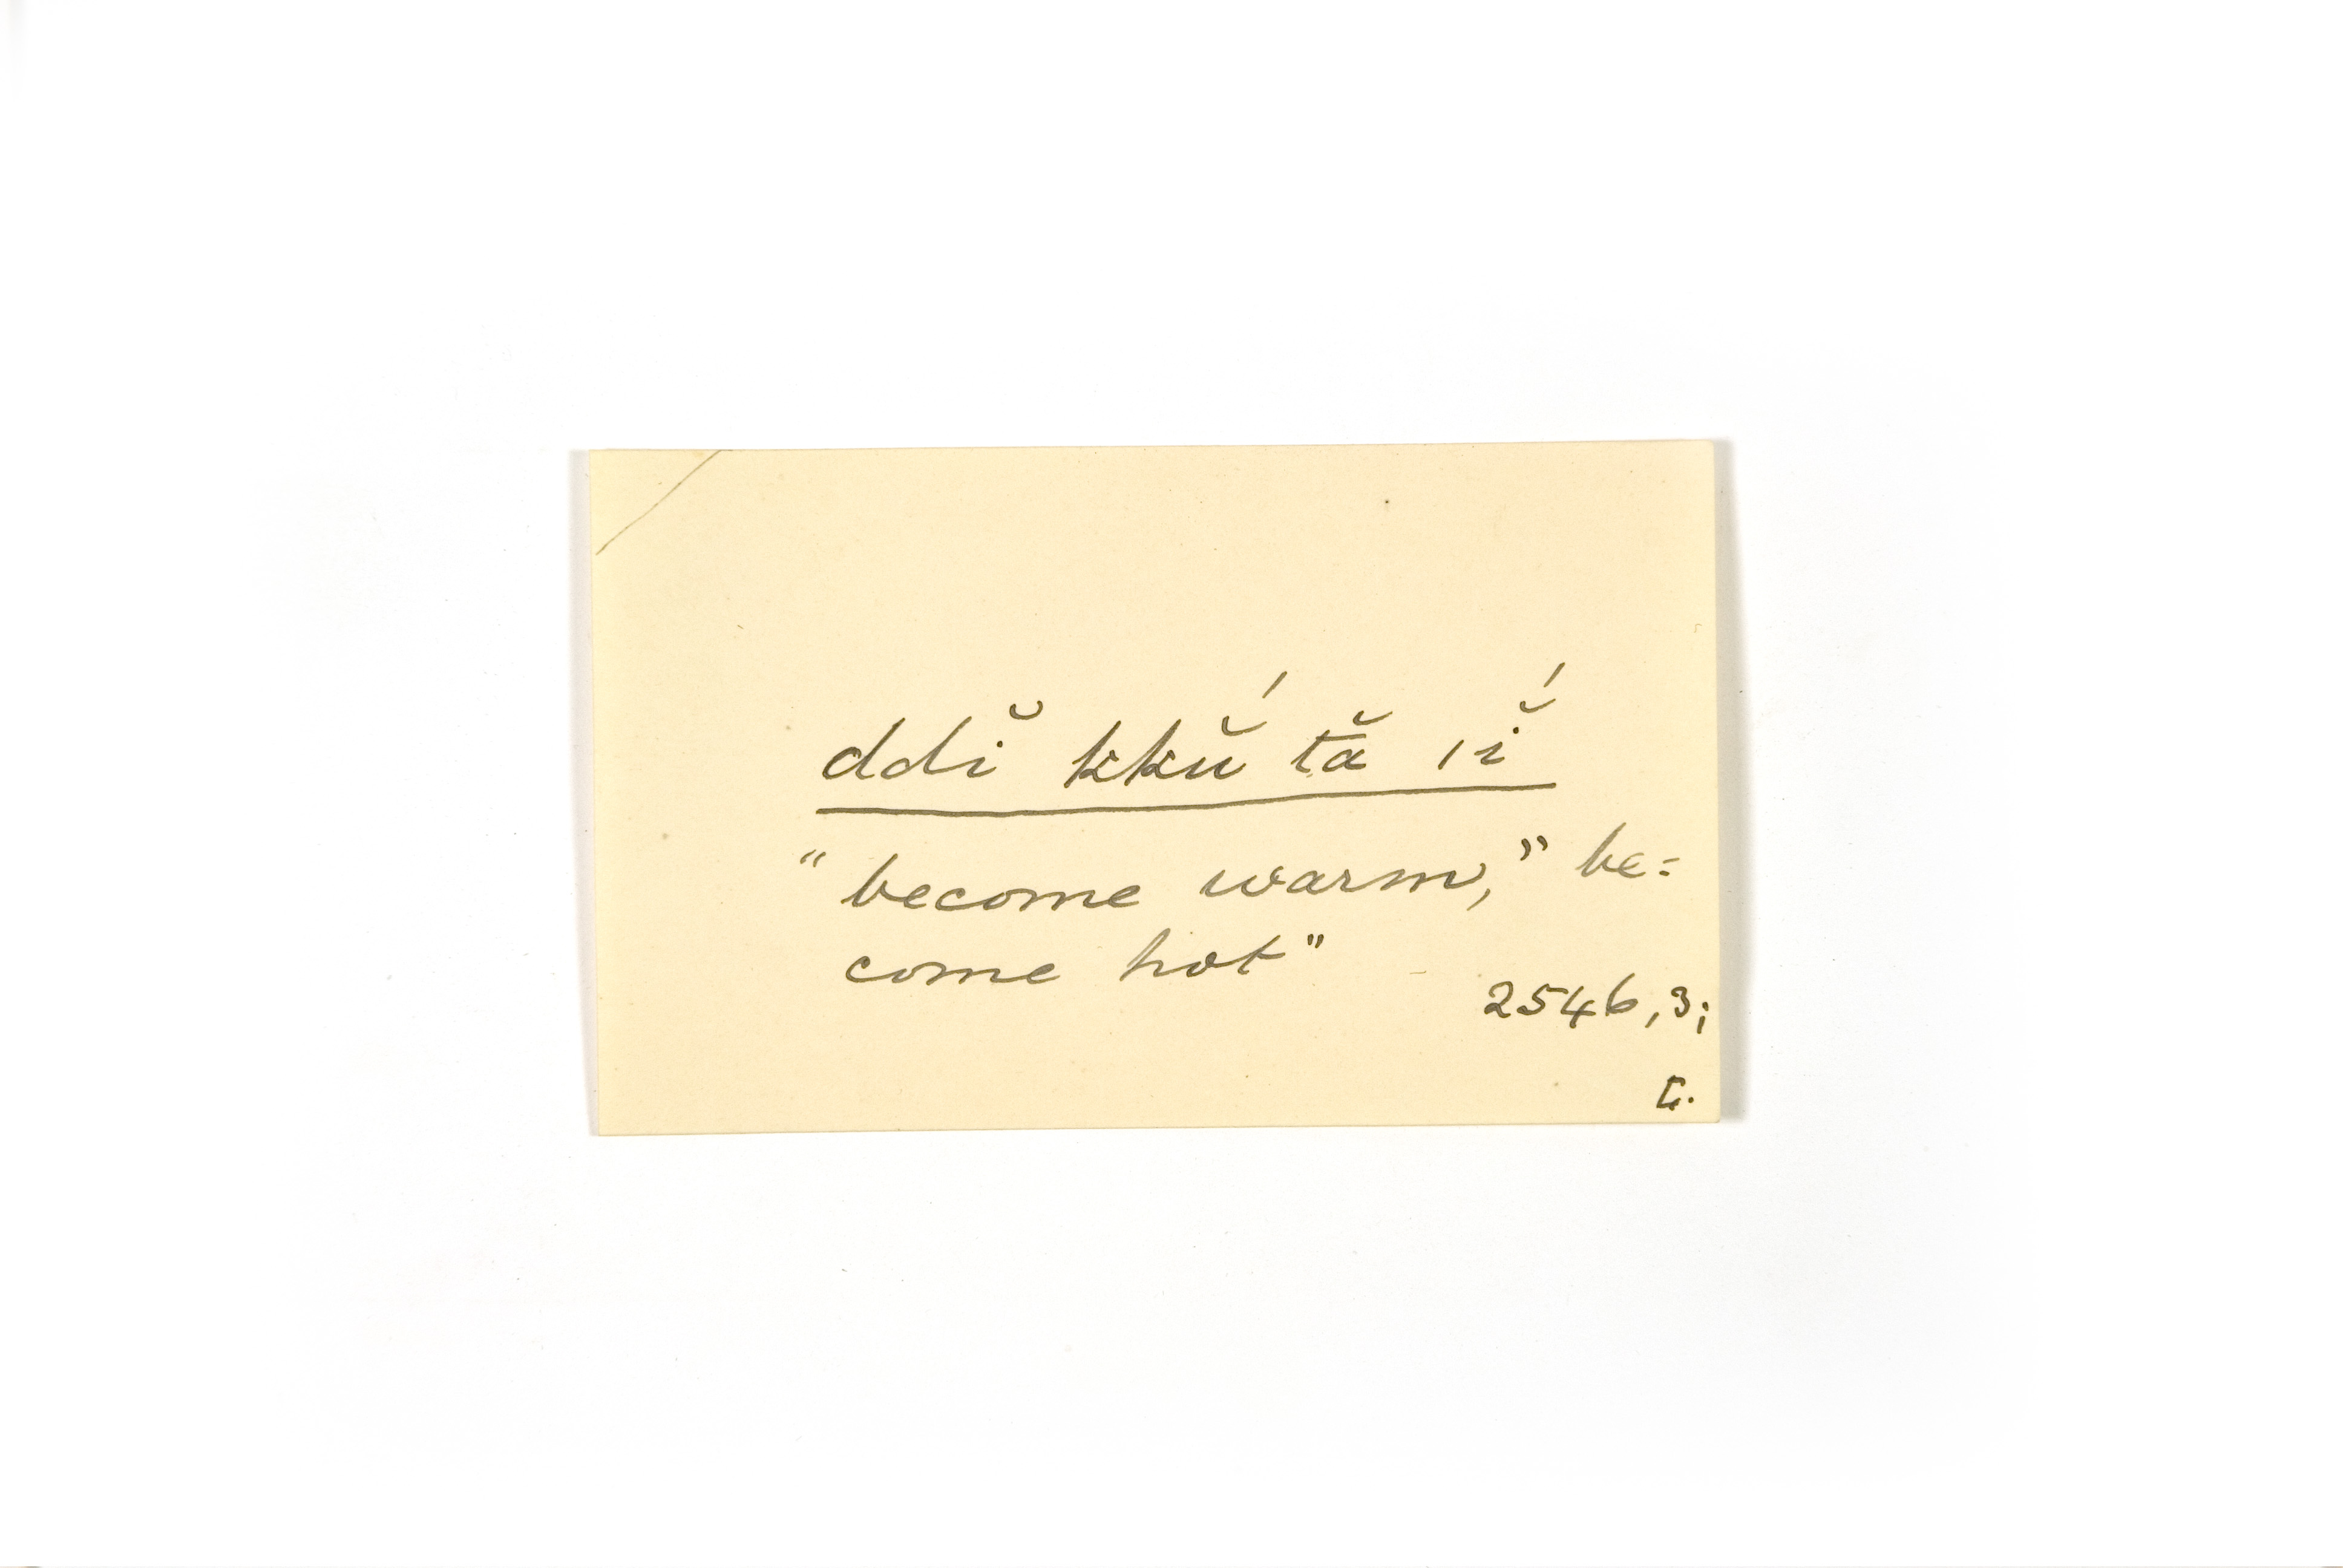 ddĭ kkŭ́ tă ıĭ́
“become warm,” be=
come hot”
2546,3;
C.